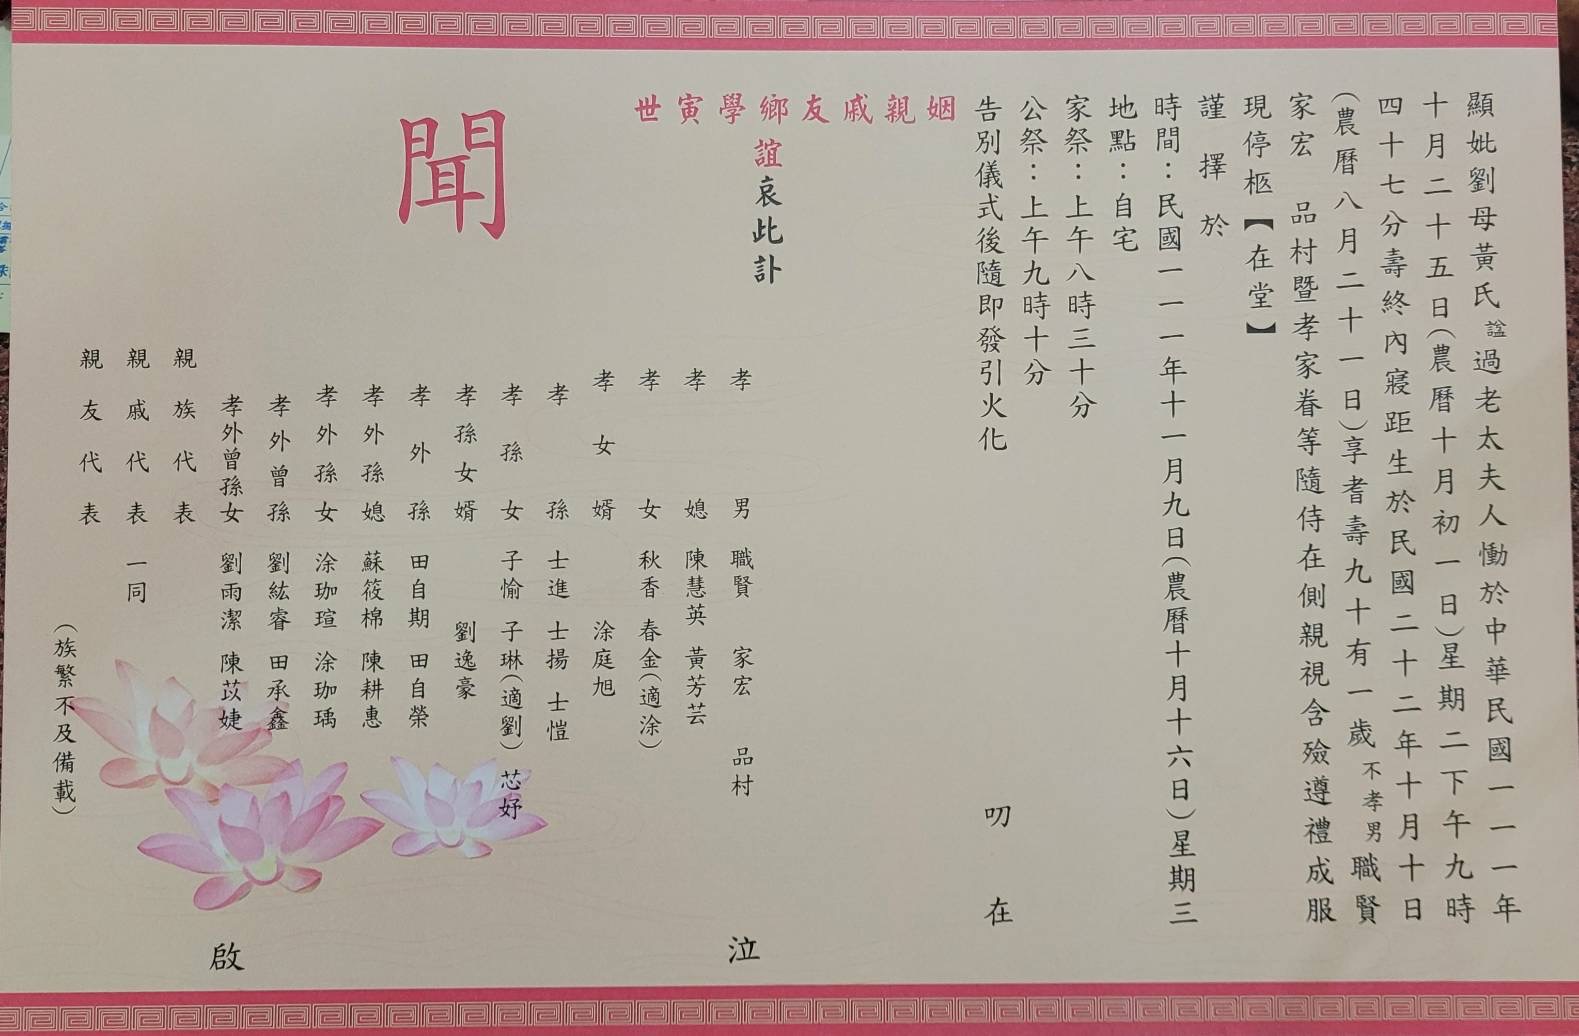 顯妣劉母黃氏諡過老太夫人慟於中華民國一一一年
十月二十五日(農曆十月初一日)星期二下午九時
四十七分壽終內寢距生於民國二十二年十月十日
(農曆八月二十一日)享耆壽九十有一歲不孝男職賢
家宏 品村暨孝家眷等隨侍在側親視含殮遵禮成服
現停柩【在堂】
謹擇於
時間：民國一一一年十一月九日(農曆十月十六日)星期三
地點：自宅
家祭：上午八時三十分
公祭：上午九時十分
告別儀式後隨即發引火化
叨在
姻親戚友鄉學寅世
誼哀此訃
聞
孝男 職賢 家宏 品村
孝媳 陳慧英 黃芳芸
孝女 秋香 春金(適涂)
孝女婿 涂庭旭
孝孫 士進 士揚 士愷
孝孫女 子愉 子琳(適劉) 芯妤
孝孫女婿 劉逸豪
孝外孫 田自期 田自榮
孝外孫媳 蘇筱棉 陳耕惠
孝外孫女 涂珈瑄 涂珈瑀
孝外曾孫 劉紘睿 田承鑫
孝外曾孫女 劉雨潔 陳苡婕
親族代表
親戚代表 一同
親友代表
(族繁不及備載)
泣
啟